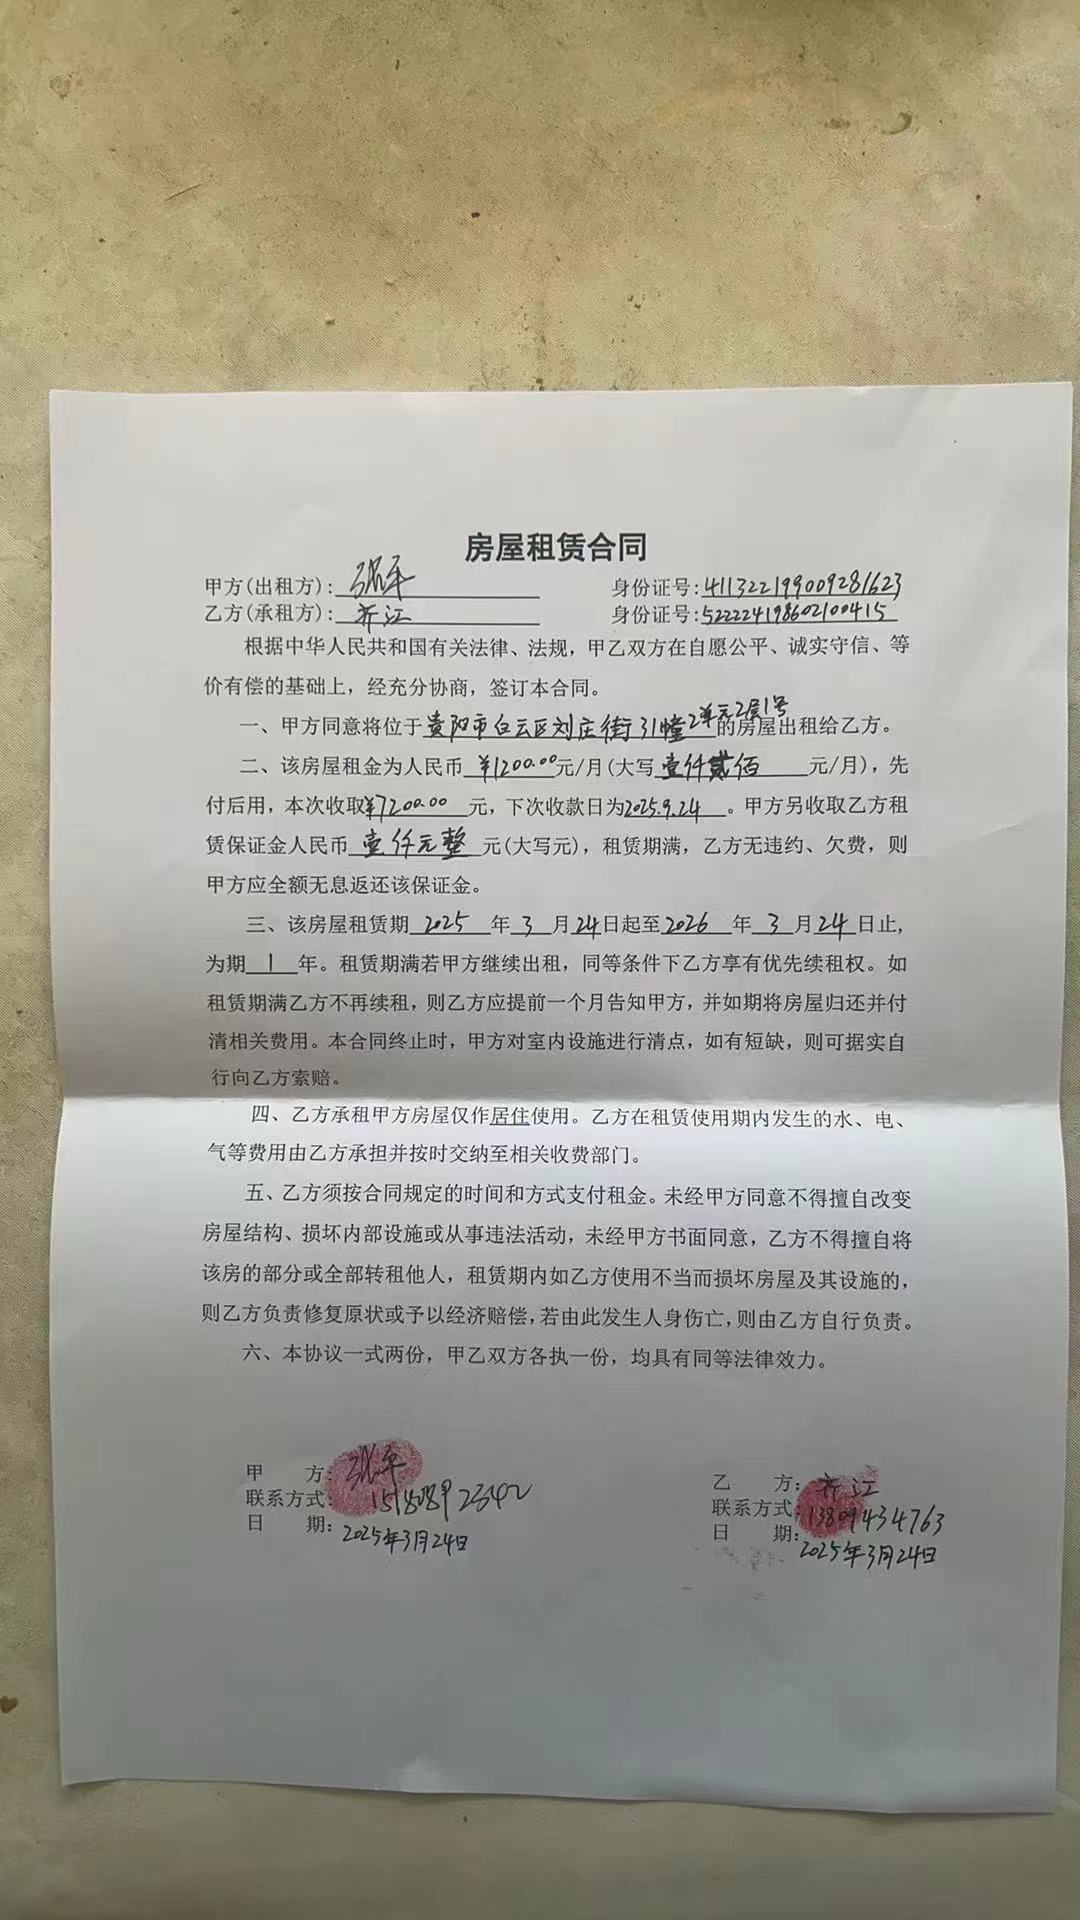 房屋租赁合同
甲方(出租方): 张平 身份证号:411322199009281623
乙方(承租方): 齐江 身份证号:522224198602100415
根据中华人民共和国有关法律、法规，甲乙双方在自愿公平、诚实守信、等
价有偿的基础上，经充分协商，签订本合同。
一、甲方同意将位于贵阳市白云区刘庄街31幢2单元2层1号的房屋出租给乙方。
二、该房屋租金为人民币 ¥1200.00元/月(大写 壹仟贰佰 元/月)，先
付后用，本次收取¥7200.00 元，下次收款日为2025.9.24 。甲方另收取乙方租
赁保证金人民币 壹仟元整 元(大写元)，租赁期满，乙方无违约、欠费，则
甲方应全额无息返还该保证金。
三、该房屋租赁期 2025 年 3 月 24日起至2026 年 3 月 24 日止,
为期 1 年。租赁期满若甲方继续出租，同等条件下乙方享有优先续租权。如
租赁期满乙方不再续租，则乙方应提前一个月告知甲方，并如期将房屋归还并付
清相关费用。本合同终止时，甲方对室内设施进行清点，如有短缺，则可据实自
行向乙方索赔。
四、乙方承租甲方房屋仅作居住使用。乙方在租赁使用期内发生的水、电、
气等费用由乙方承担并按时交纳至相关收费部门。
五、乙方须按合同规定的时间和方式支付租金。未经甲方同意不得擅自改变
房屋结构、损坏内部设施或从事违法活动，未经甲方书面同意，乙方不得擅自将
该房的部分或全部转租他人，租赁期内如乙方使用不当而损坏房屋及其设施的，
则乙方负责修复原状或予以经济赔偿，若由此发生人身伤亡，则由乙方自行负责。
六、本协议一式两份，甲乙双方各执一份，均具有同等法律效力。
甲 方: 张平
联系方式:
日 期: 2025年3月24日
乙 方: 齐江
联系方式:13809434763
日 期: 2025年3月24日